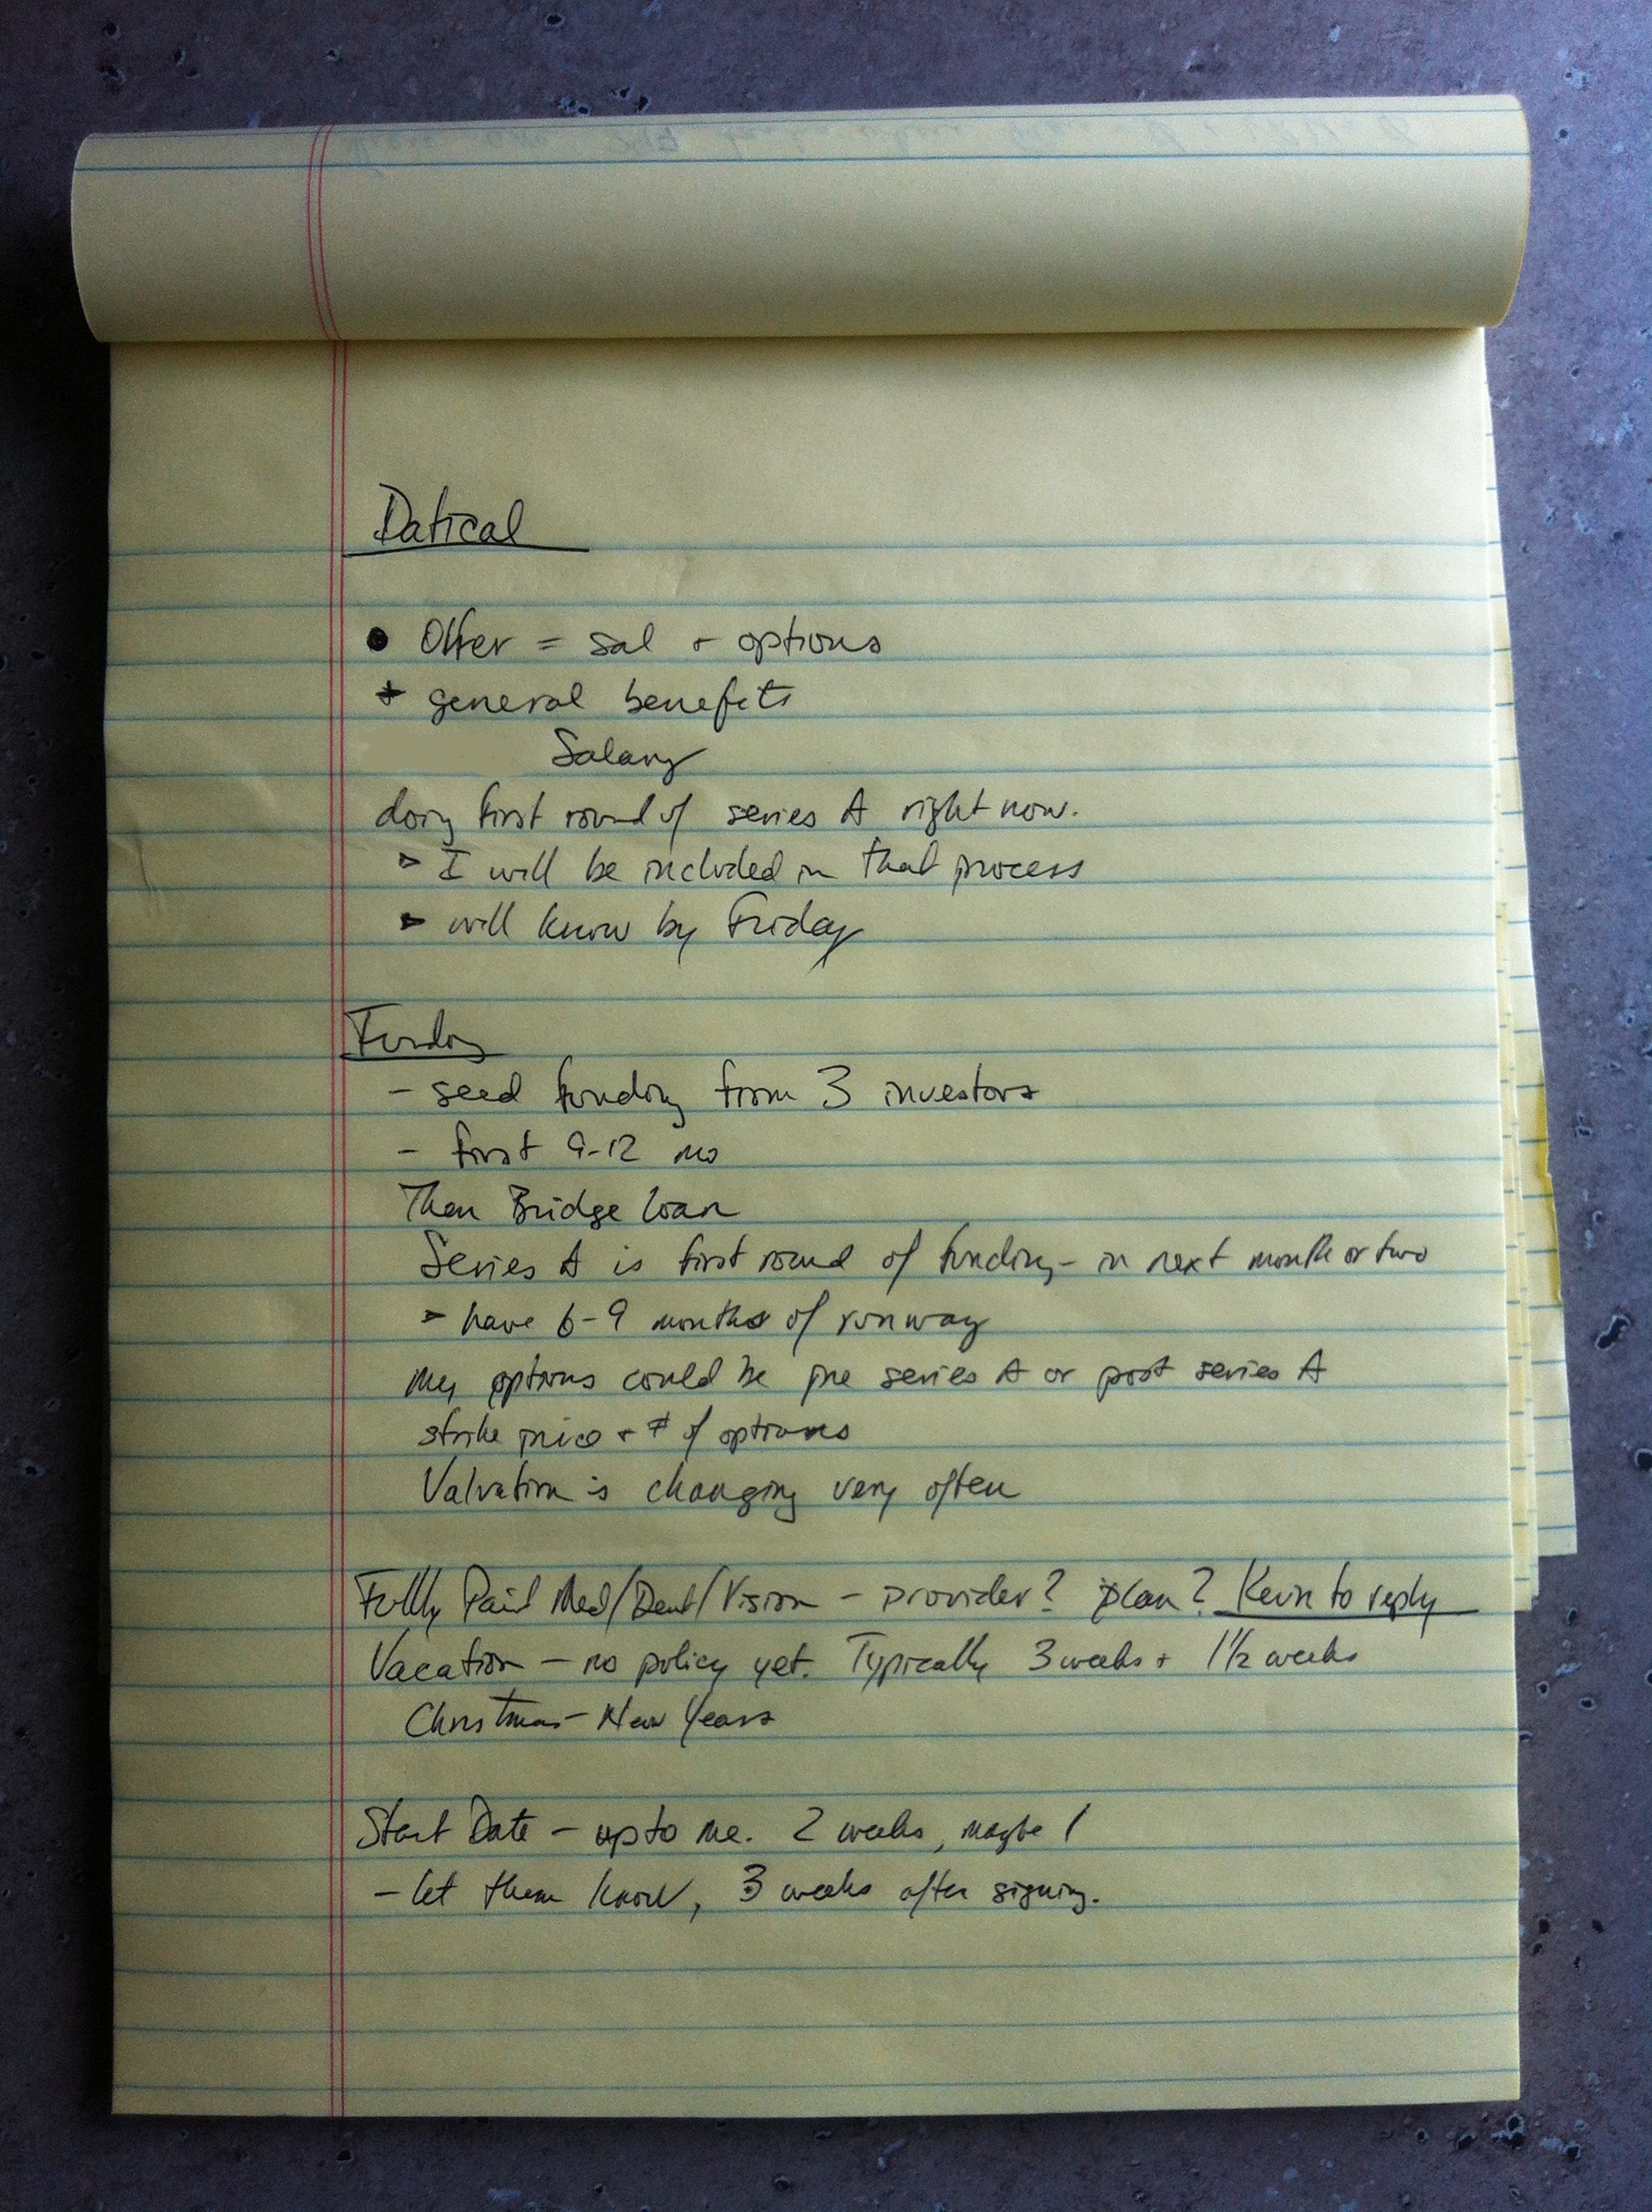 Datical
• Offer = sal + options
+ general benefits
Salary
doing first round of series A right now.
▸ I will be included in that process
▸ will know by Friday
Funding
- seed funding from 3 investors
- first 9-12 mo
Then Bridge loan
Series A is first round of funding - in next month or two
▸ have 6-9 months of runway
my options could be pre series A or post series A
strike price + # of options
Valuation is changing very often
Fully Paid Med/Dent/Vision - provider? plan? Kevin to reply
Vacation - no policy yet. Typically 3 weeks + 1 1/2 weeks
Christmas - New Years
Start Date - up to me. 2 weeks, maybe 1
- let them know, 3 weeks after signing.